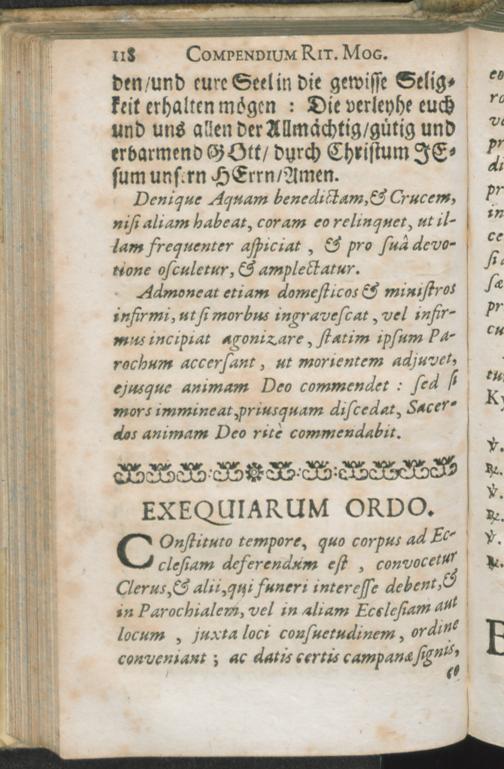 118 COMPENDIUM RIT. MOG.
den/und eure Seel in die gewisse Selig-
keit erhalten mögen : Die verleyhe euch
und uns allen der Allmächtig/gütig und
erbarmend GOtt/ durch Christum JE-
sum unsern HErrn/Amen.
Denique Aquam benedictam,& Crucem,
nisi aliam habeat, coram eo relinquet, ut il-
lam frequenter aſpiciat , & pro ſuâ devo-
tione oſculetur, & amplectatur.
Admoneat etiam domeſticos & miniſtros
infirmi, ut ſi morbus ingraveſcat , vel infir-
mus incipiat agonizare, ſtatim ipſum Pa-
rochum accerſant, ut morientem adjuvet,
ejusque animam Deo commendet : ſed ſi
mors immineat,priusquam diſcedat, Sacer-
dos animam Deo ritè commendabit.
EXEQUIARUM ORDO.
COnſtituto tempore, quo corpus ad Ec-
cleſiam deferendum eſt , convocetur
Clerus,& alii,qui funeri intereſſe debent,&
in Parochialem, vel in aliam Eccleſiam aut
locum , juxta loci conſuetudinem, ordine
conveniant ; ac datis certis campanæ ſignis,
eo